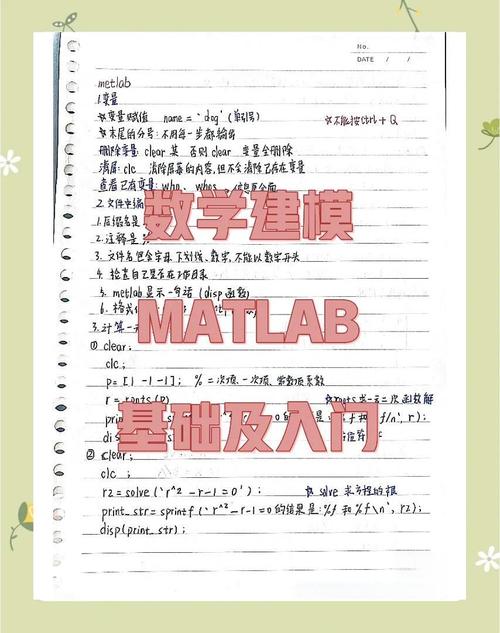 No.
DATE / /
metlab
1.变量
☆变量赋值 name='dog'(单引号) ☆不能按ctrl+Q
☆末尾的分号:不用每一步都输出
删除变量:clear 某 否则clear 变量全删除
清屏:clc 清除屏幕的内容,但不会清除已存在变量
查看已有变量:who、whos
2.文件中编
1.后缀名是
2.注释是
3.文件名包含字母、下划线、数字,不能以数字开头
4.检查自己是否在工作目录
5.metlab显示一句话(disp函数)
6.格式
3.计算一元
①clear;
clc;
p=[1 -1 -1]; %二次项、一次项、常数项系数
r=roots(p) ☆roots求一元二次函数解
的结果是:%f和%f\n',r);
②clear;
clc;
r2=solve('r^2-r-1=0'); ☆solve 求方程的根
print_str=sprintf('r^2-r-1=0的结果是:%f和%f\n',r2);
disp(print_str);
数学建模
MATLAB
基础及入门